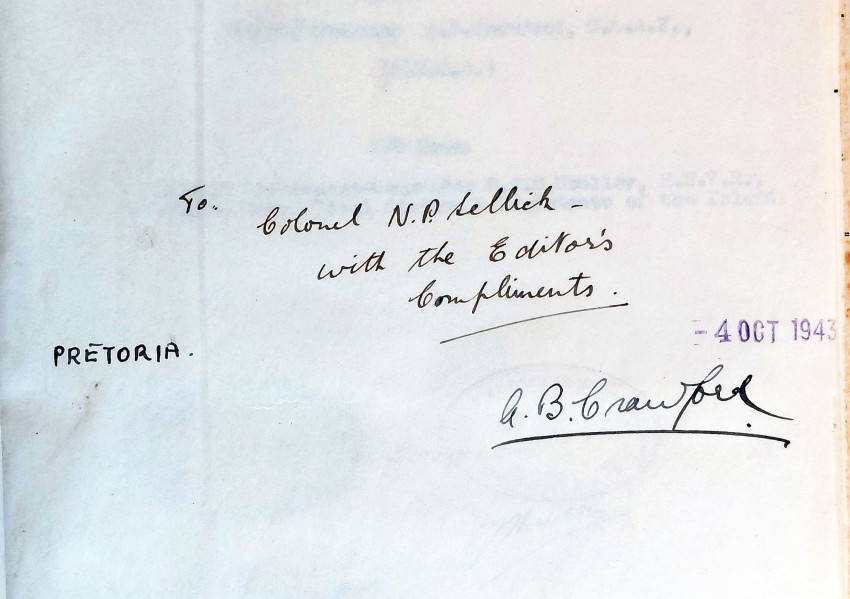 To.
Colonel N.P. Sellick -
with the Editor's
Compliments.
- 4 OCT 1943
PRETORIA.
A. B. Crawford.